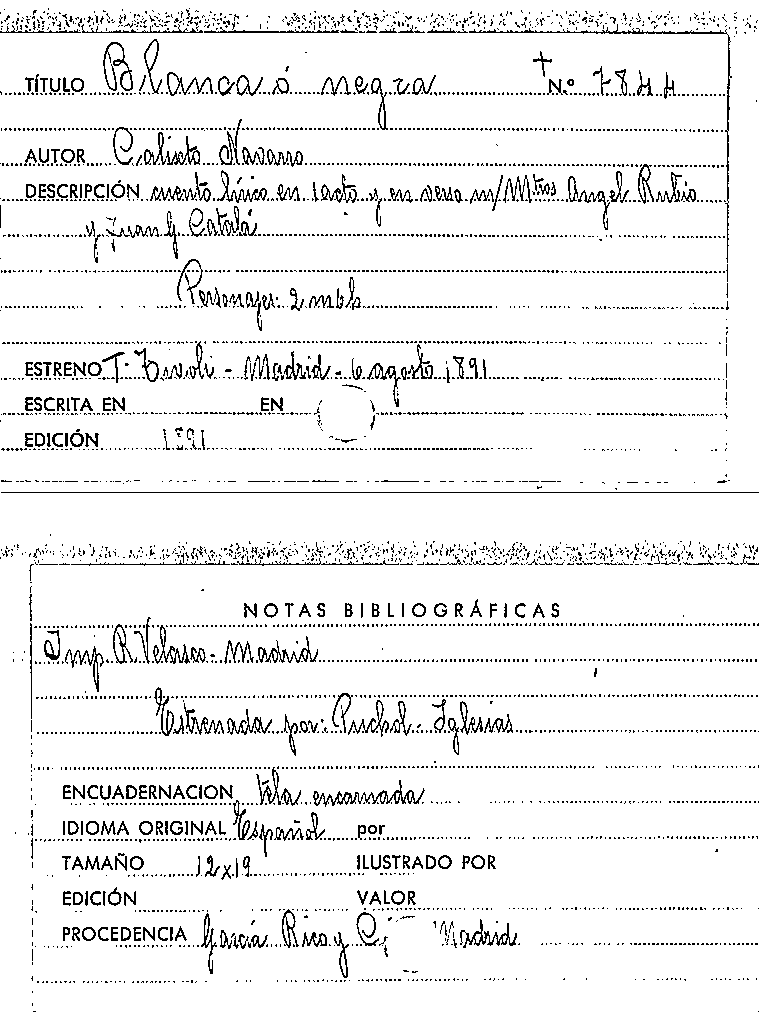 TÍTULO Blanca ó negra Nº 7844
AUTOR Calixto Navarro
DESCRIPCIÓN cuento lírico en 1 acto y en verso m/ Mtros Angel Rubio
y Juan G. Catalá
Personajes: 2 m 6 h
ESTRENO T. Tívoli - Madrid - 6 agosto 1891
ESCRITA EN EN
EDICIÓN 1891
NOTAS BIBLIOGRÁFICAS
Imp. R. Velasco - Madrid
Estrenada por: Puchol - Iglesias
ENCUADERNACION tela encarnada
IDIOMA ORIGINAL Español por
TAMAÑO 12x19 ILUSTRADO POR
EDICIÓN VALOR
PROCEDENCIA García Rico y Cª Madrid